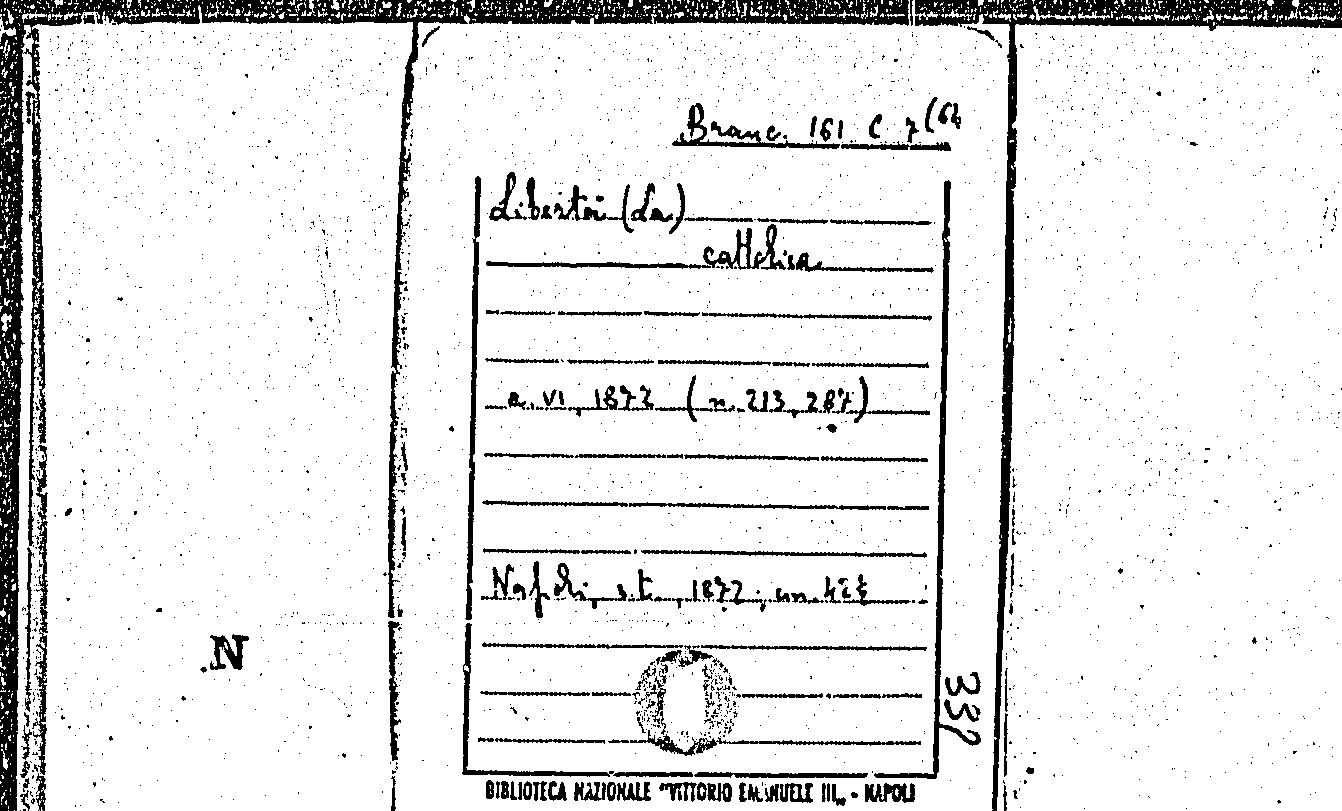 Branc. 161 C 7 (64
Libertà (La)
cattolica
a. VI, 1872 (n. 213, 287)
Napoli, s.t., 1872; cm.
N.
339
BIBLIOTECA NAZIONALE "VITTORIO EMANUELE III" - NAPOLI